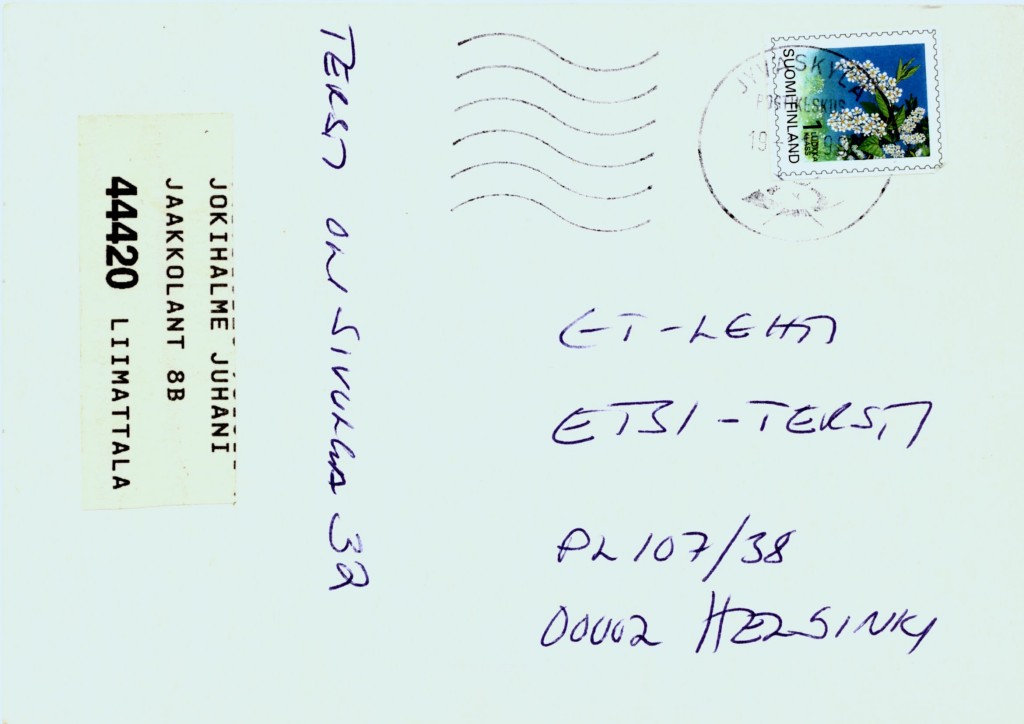 JOKIHALME JUHANI
JAAKKOLANT 8B
44420 LIIMATTALA
TERSTI ON SIVULLA 32
JYVÄSKYLÄ
POSTIKESKUS
SUOMI FINLAND
1
LUOKKA
KLASS
ET-LEHTI
ETSI-TERSTI
PL 107/38
00002 HELSINKI